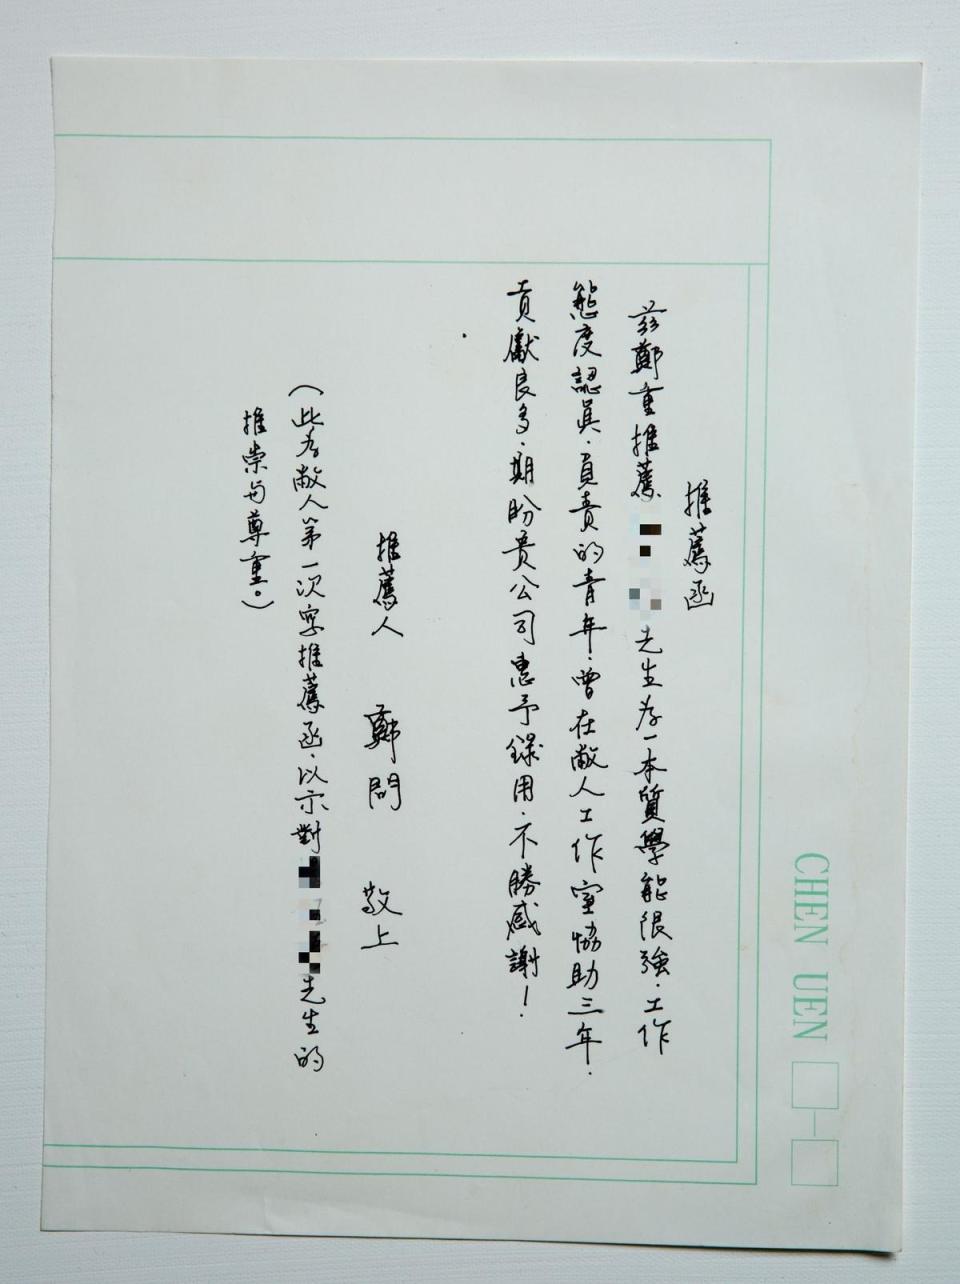 推薦函
茲鄭重推薦 先生為一本質學能很強.工作
態度認真.負責的青年.曾在敝人工作室協助三年.
貢獻良多.期盼貴公司惠予錄用.不勝感謝！
推薦人 鄭問 敬上
（此為敝人第一次寫推薦函.以示對 先生的
推崇與尊重。）
CHEN UEN